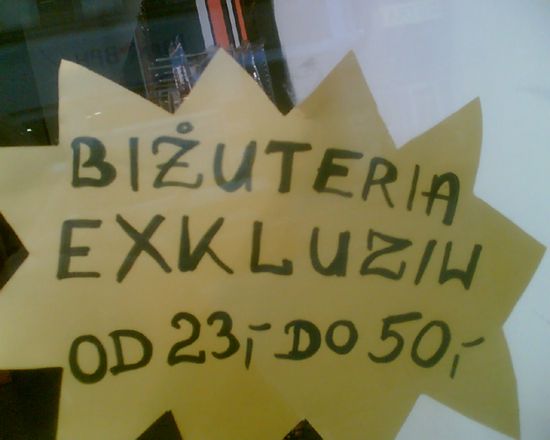 BIŻUTERIA
EXKLUZIW
OD 23,- DO 50,-